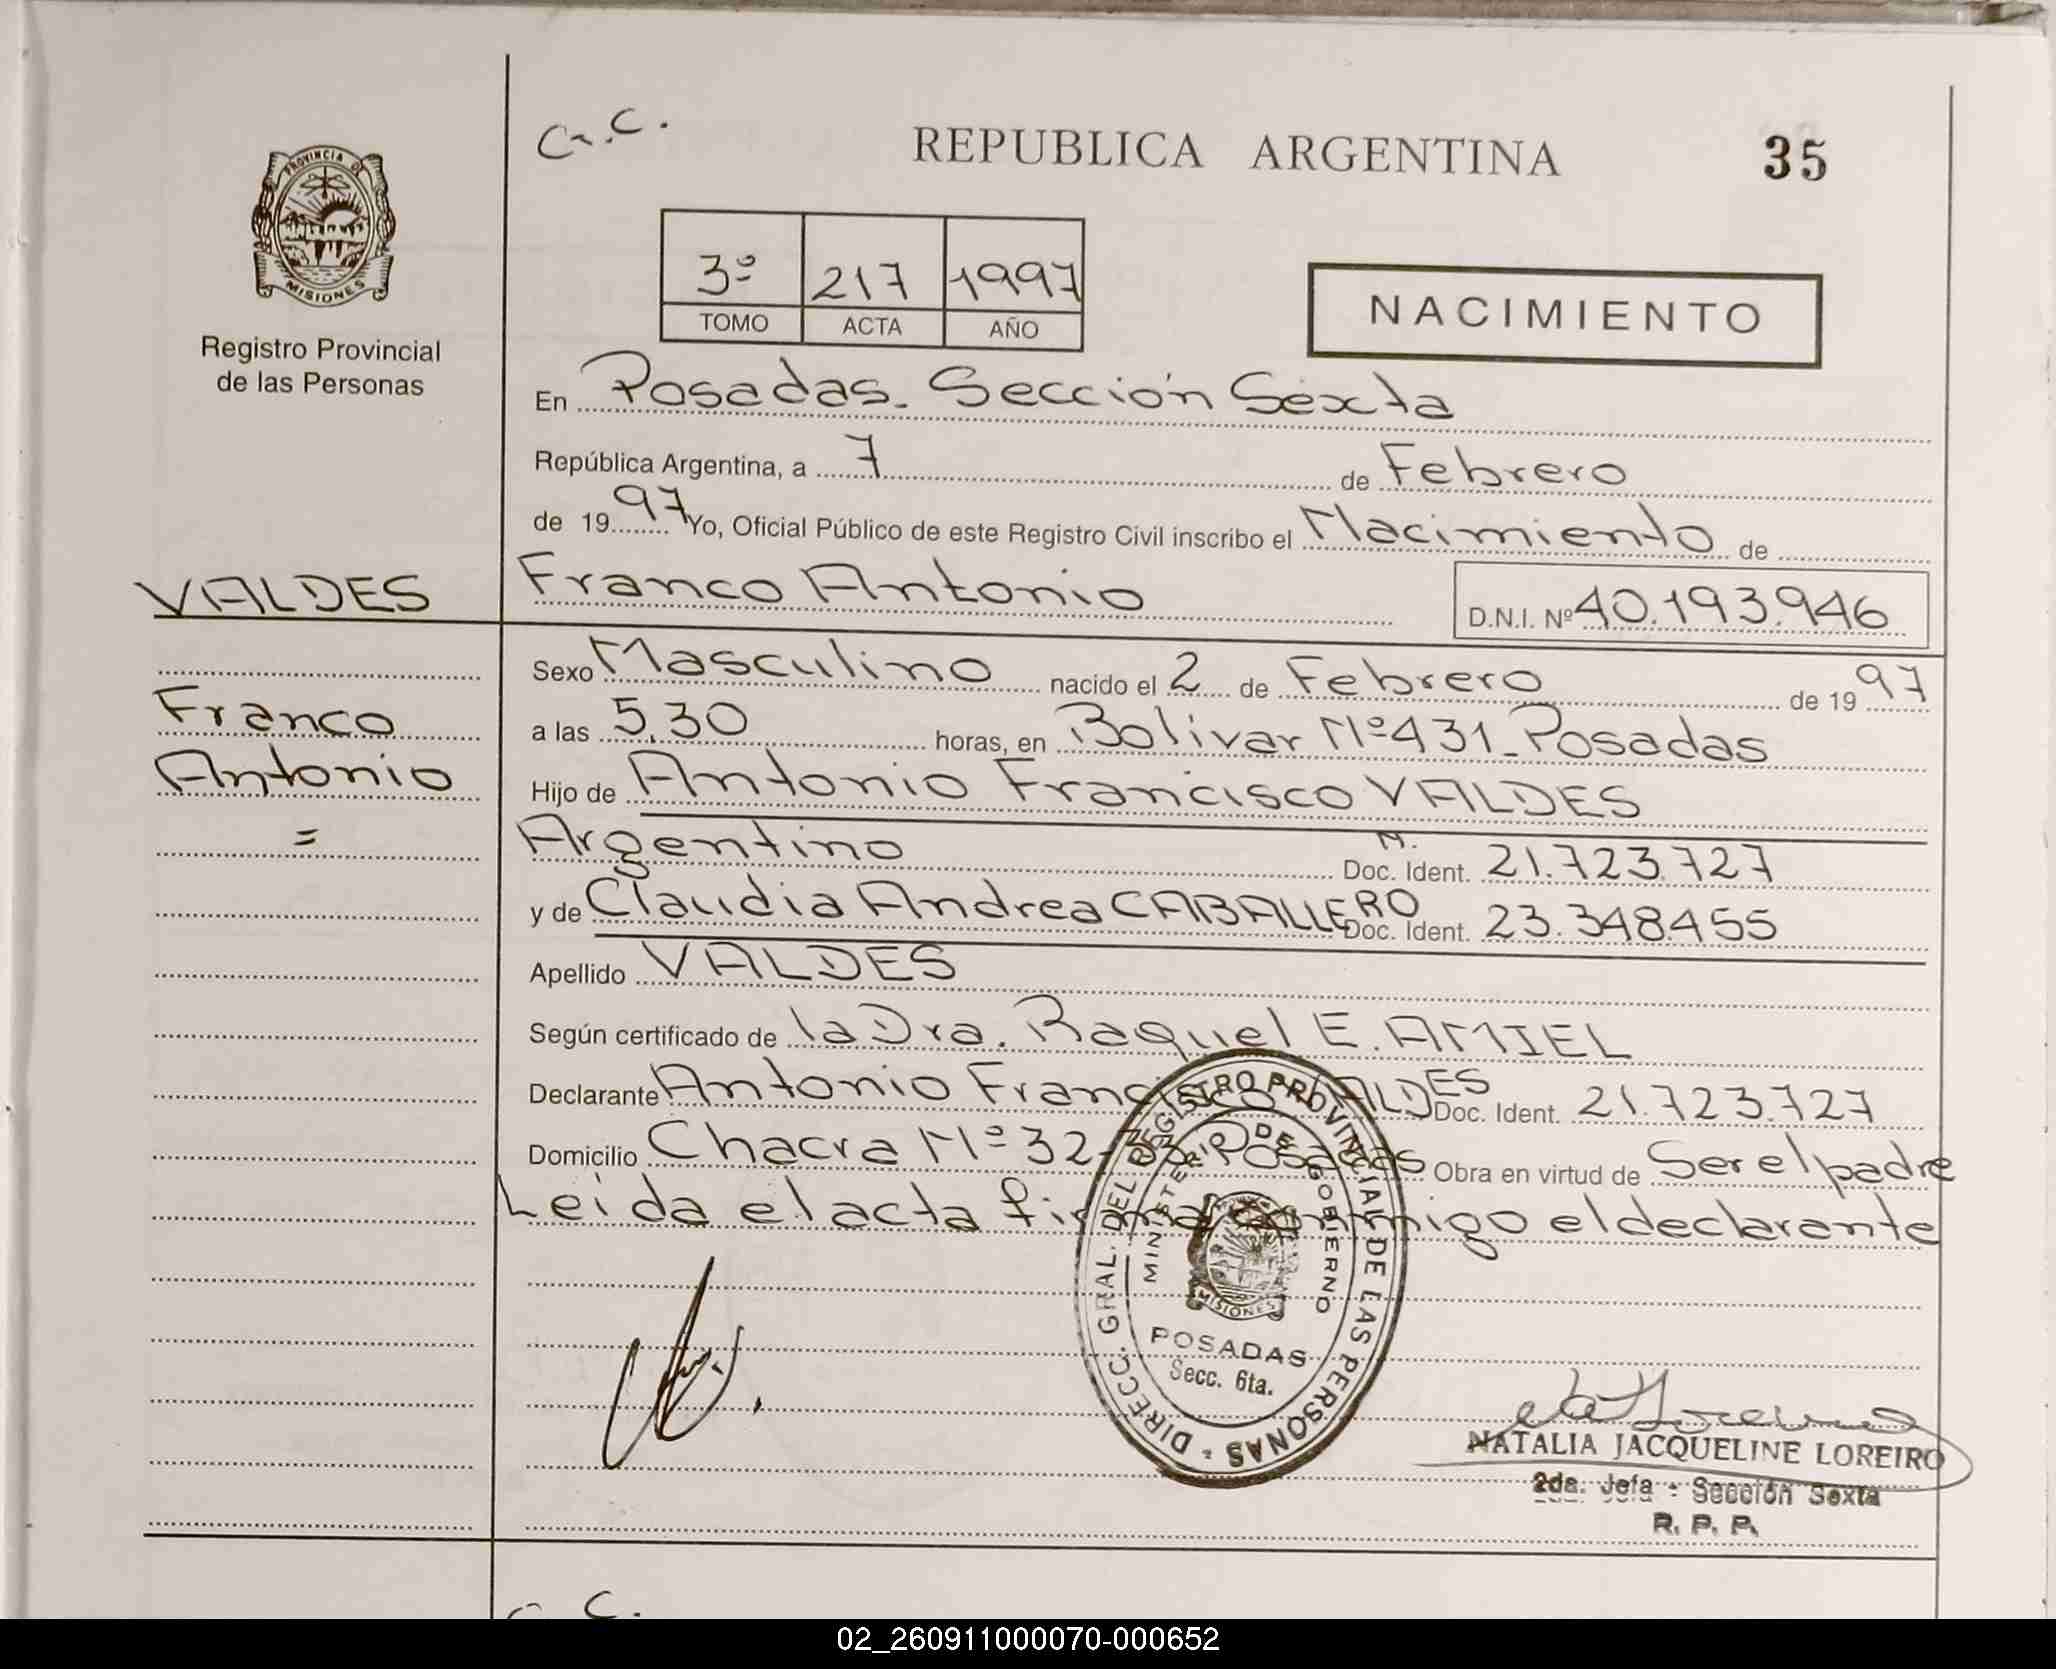 C. C.
REPUBLICA ARGENTINA
35
PROVINCIA DE
MISIONES
Registro Provincial
de las Personas
3º 217 1997
TOMO ACTA AÑO
NACIMIENTO
En Posadas. Sección Sexta
República Argentina, a 7 de Febrero
de 1997 Yo, Oficial Público de este Registro Civil inscribo el Nacimiento de
VALDES
Franco Antonio D.N.I. Nº 40.193.946
Franco
Antonio
=
Sexo Masculino nacido el 2 de Febrero de 1997
a las 5,30 horas, en Bolivar Nº 431_Posadas
Hijo de Antonio Francisco VALDES
Argentino M. Doc. Ident. 21.723.727
y de Claudia Andrea CABALLERO Doc. Ident. 23.348.455
Apellido VALDES
Según certificado de la Dra. Raquel E. AMIEL
Declarante Antonio Francisco VALDES Doc. Ident. 21.723.727
Domicilio Chacra Nº 32-33 Posadas Obra en virtud de Ser el padre
Leida el acta firma conmigo el declarante
DIRECC. GRAL. DEL REGISTRO PROVINCIAL DE LAS PERSONAS -
MINISTERIO DE GOBIERNO
MISIONES
POSADAS
Secc. 6ta.
NATALIA JACQUELINE LOREIRO
2da. Jefa - Sección Sexta
R. P. P.
C. C.
02_260911000070-000652